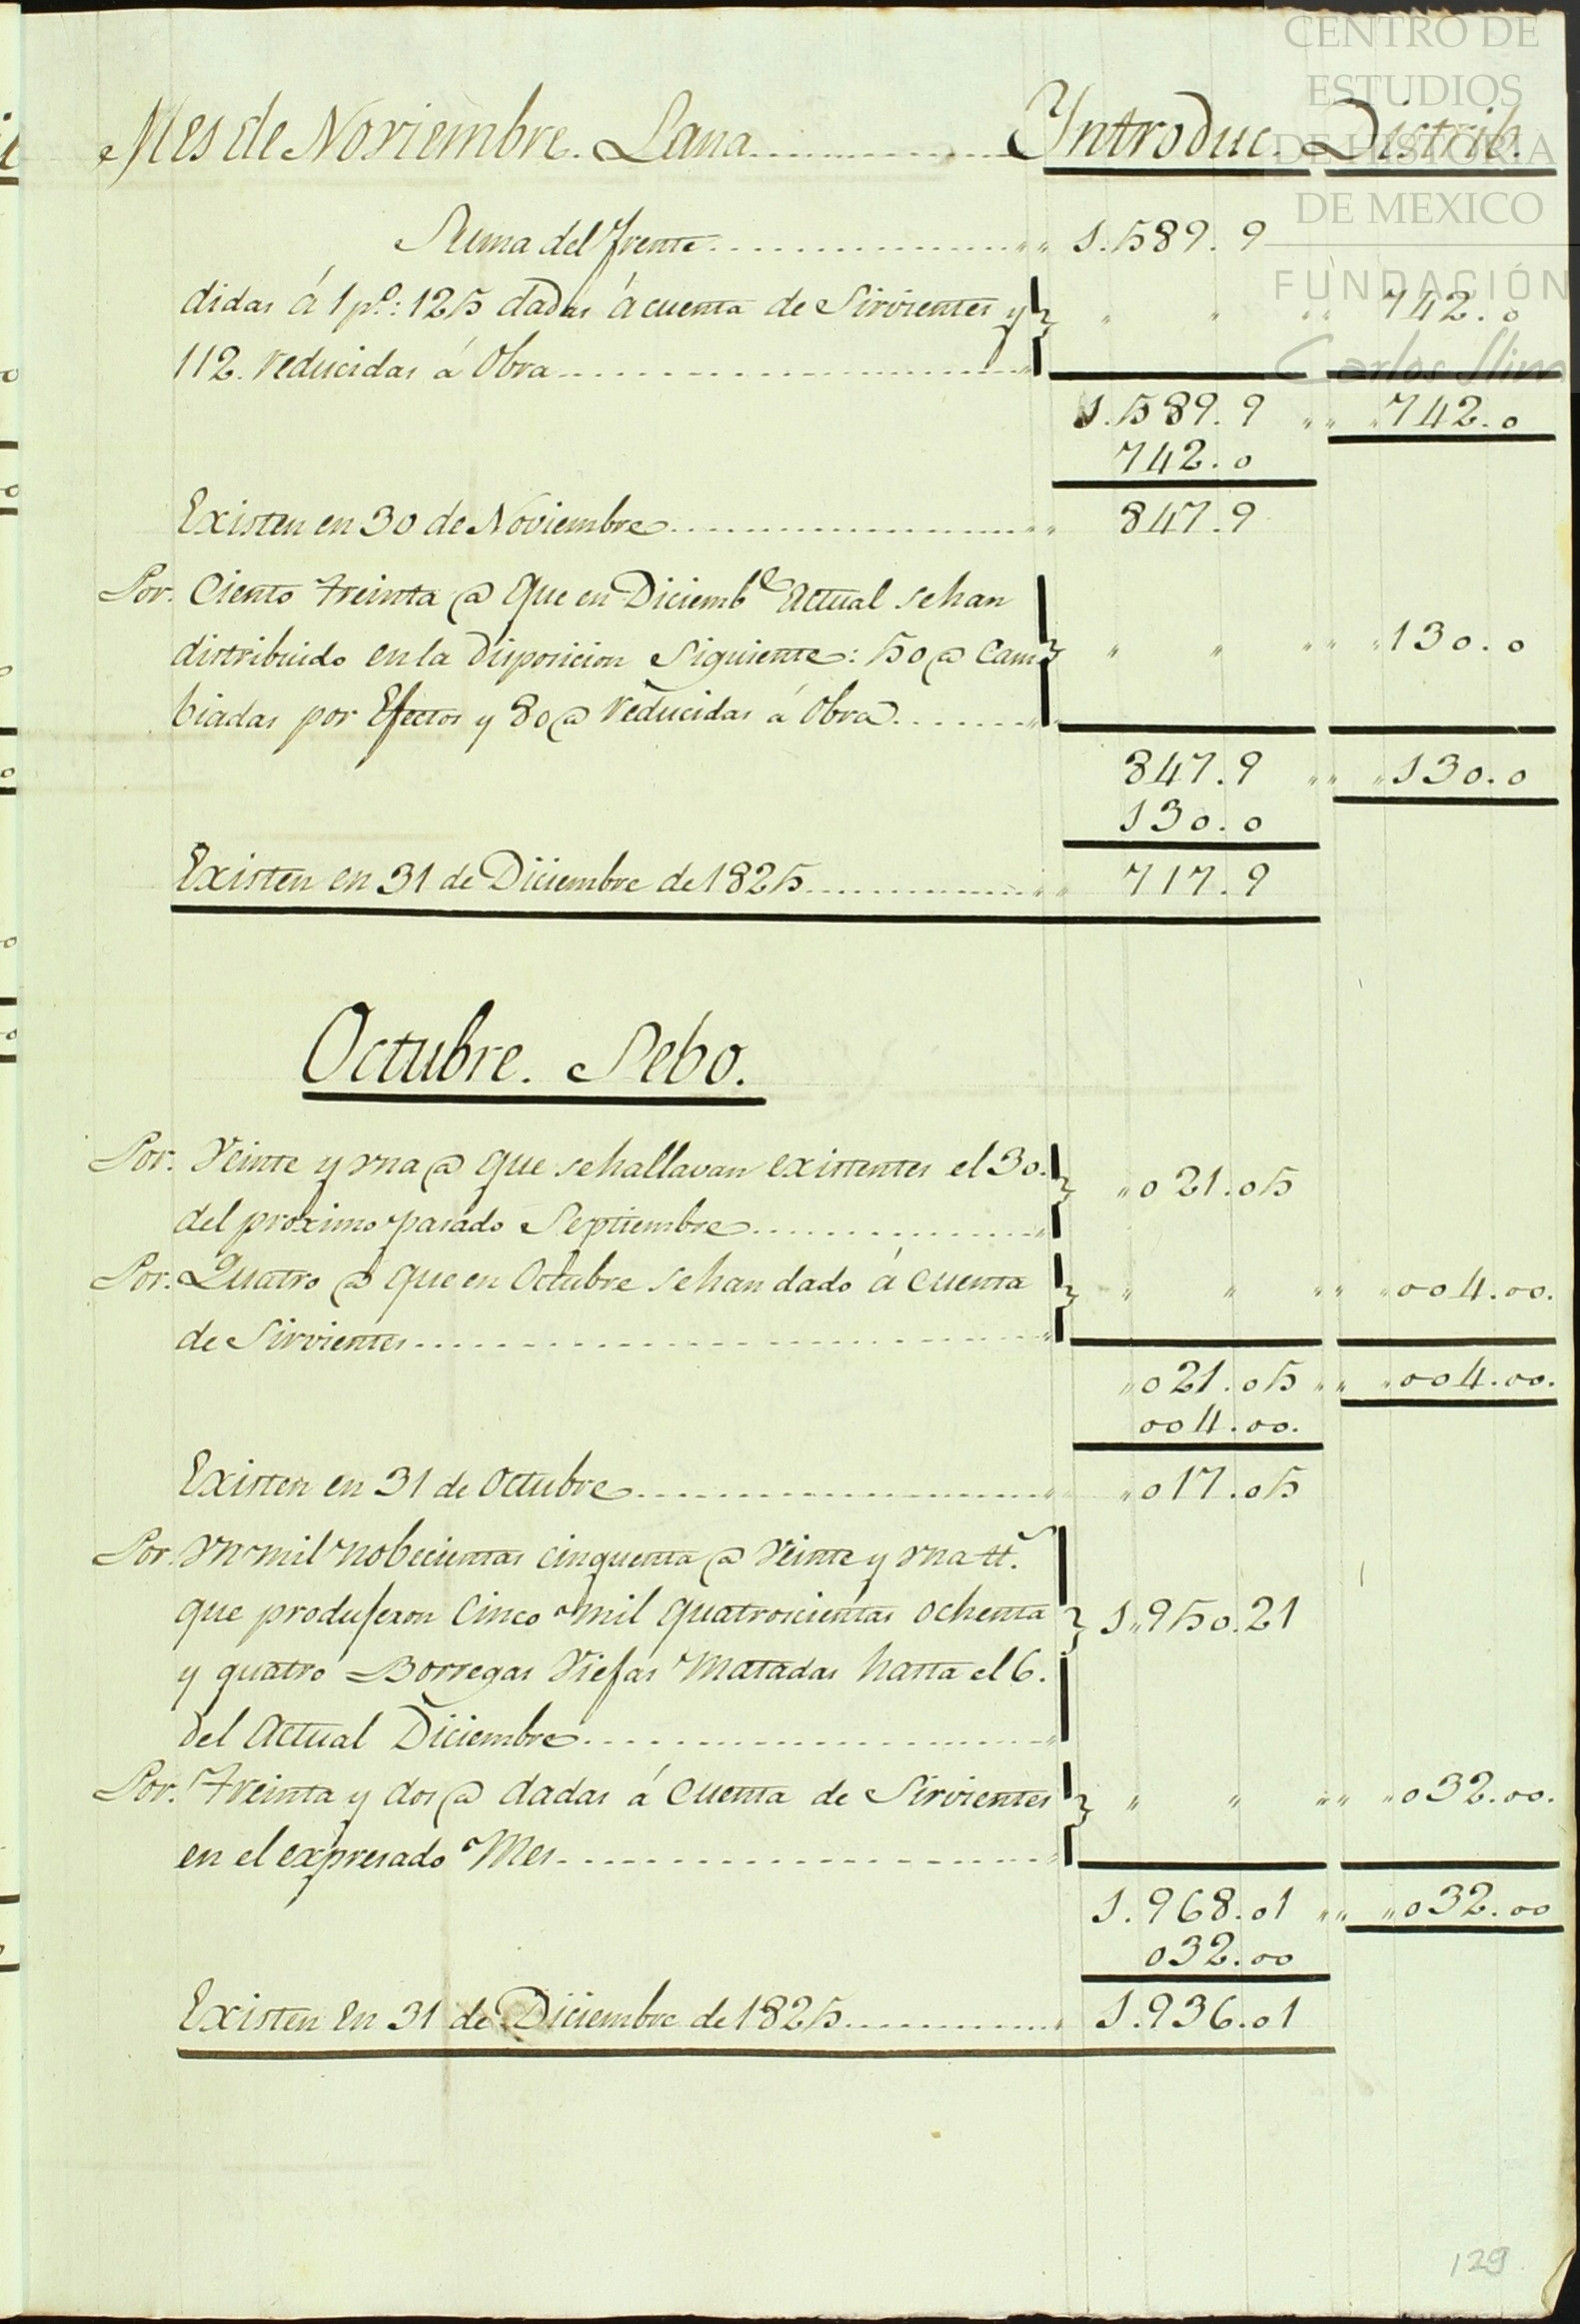 CENTRO DE
ESTUDIOS
DE HISTORIA
DE MEXICO
FUNDACIÓN
Carlos Slim
Mes de Noviembre. Lana Introduc. Distrib.
Suma del frente 1.589.9
didas á 1 po: 125 dadas á cuenta de Sirvientes y " " " " 742.0
112. reducidas á Obra
1.589.9 " " " 742.0
742.0
Existen en 30 de Noviembre " " 847.9
Por. Ciento treinta @ que en Diciembe Actual se han
distribuido en la disposicion Siguiente: 50 @ Cam " " " " " 130.0
biadas por Efectos y 80 @ reducidas á Obra
847.9 " " " 130.0
130.0
Existen en 31 de Diciembre de 1825 " " 717.9
Octubre. Sebo.
Por. Veinte y vna @ que se hallavan existentes el 30. " 021.05
del proximo pasado Septiembre
Por. Quatro @ que en Octubre se han dado á Cuenta " " " " " 004.00.
de Sirvientes
" 021.05 " " " 004.00.
004.00.
Existen en 31 de Octubre " " " 017.05
Por. Vn mil nobecientas cinquenta @ Veinte y vna ℔.
que produjeron Cinco mil quatrocientas ochenta 1"950.21
y quatro Borregas Viejas Matadas hasta el 6.
del Actual Diciembre
Por. Treinta y dos @ dadas á Cuenta de Sirvientes " " " " " 032.00.
en el expresado Mes
1.968.01 " " " 032.00
032.00
Existen en 31 de Diciembre de 1825 1.936.01
129